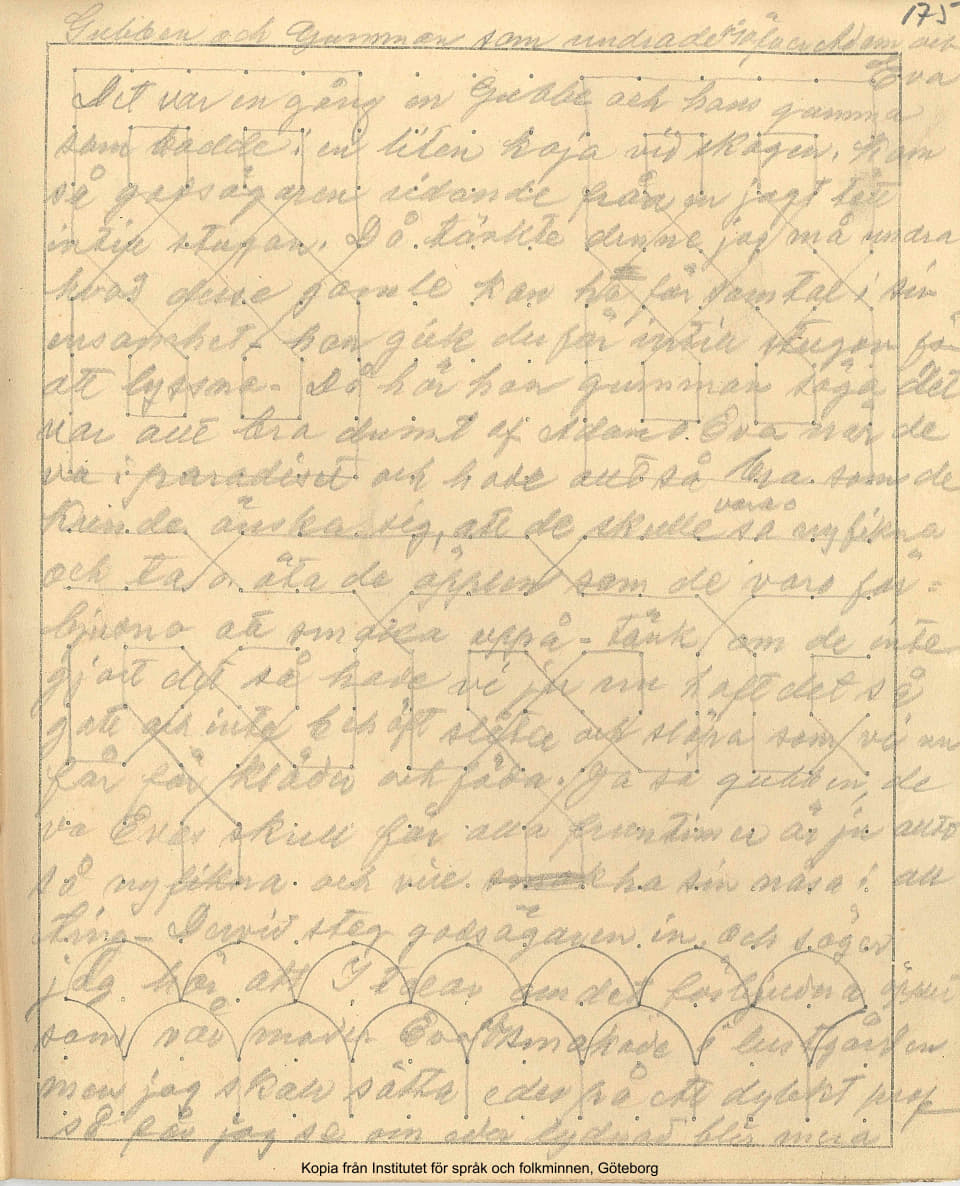 175
Gubben och Gumman som undrade så öfver Adam och
Eva
Det var en gång en Gubbe och hans gumma
som bodde i en liten koja vid skogen. kom
så godsägaren ridande från en jagt tätt
intill stugan. Då tänkte denne jag må undra
hvad desse gamle kan ha för samtal i sin
ensamhet – han gick derför intill stugan för
att lyssna – Då hör han gumman säga det
var allt bra dumt af Adam o. Eva när de
va i paradiset och hade allt så bra som de
kunde önska sig, att de skulle vara så nyfikna
och ta o. äta de äpplen som de varo för-
bjudna att smaka uppå – tänk om de inte
gjort det så hade vi ju nu haft det så
gott och inte behöft slita och släpa som vi nu
får för kläder och föda. Ja sa gubben, de
va Evas skull för alla fruntimer är ju alltid
så nyfikna och vill ha sin näsa i all
ting – Dervid steg godsägaren in och säger
jag hör att I talar om det förbjudna äpplet
som vår moder Eva smakade i lustgården
men jag skall sätta eder på ett dylikt prof
så får jag se om eder lydnad blir mera
Kopia från Institutet för språk och folkminnen, Göteborg